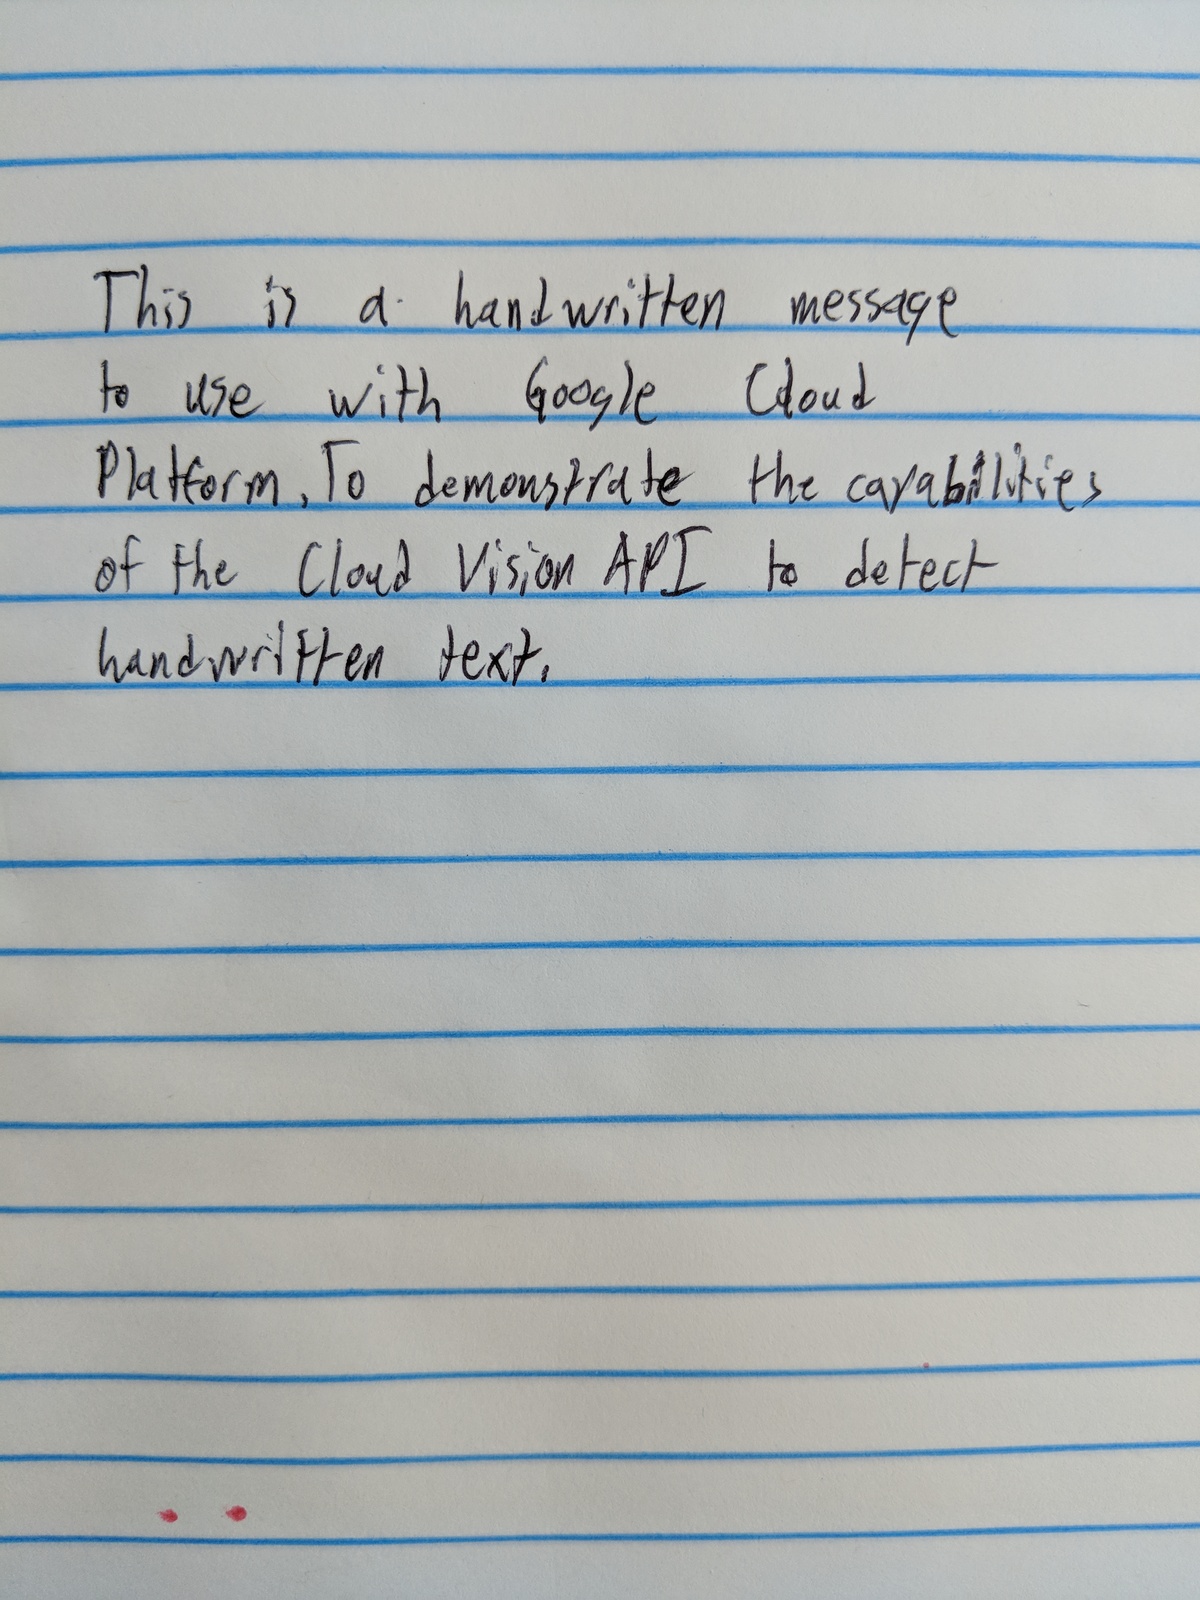 This is a handwritten message
to use with Google Cloud
Platform. To demonstrate the capabilities
of the Cloud Vision API to detect
handwritten text.